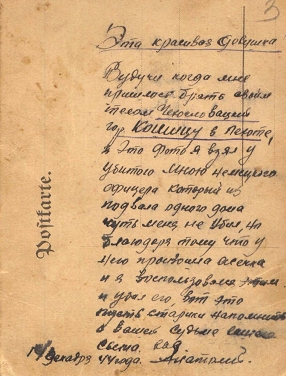 3
Эта красивая девушка
Будучи когда мне
пришлось брать своим
телом Чехословацкий
гор. Кошицу в пехоте,
и Это Фото я взял у
убитого мною немецкого
офицера который из
подвала одного дома
чуть меня не убил, но
благодаря тому что у
него произошла осечка
и я воспользовался
и убил его, Вот это
старики напомнить
о вашей судьбе
сына,
14 декабря 44 года. Анатолий.
Postkarte.